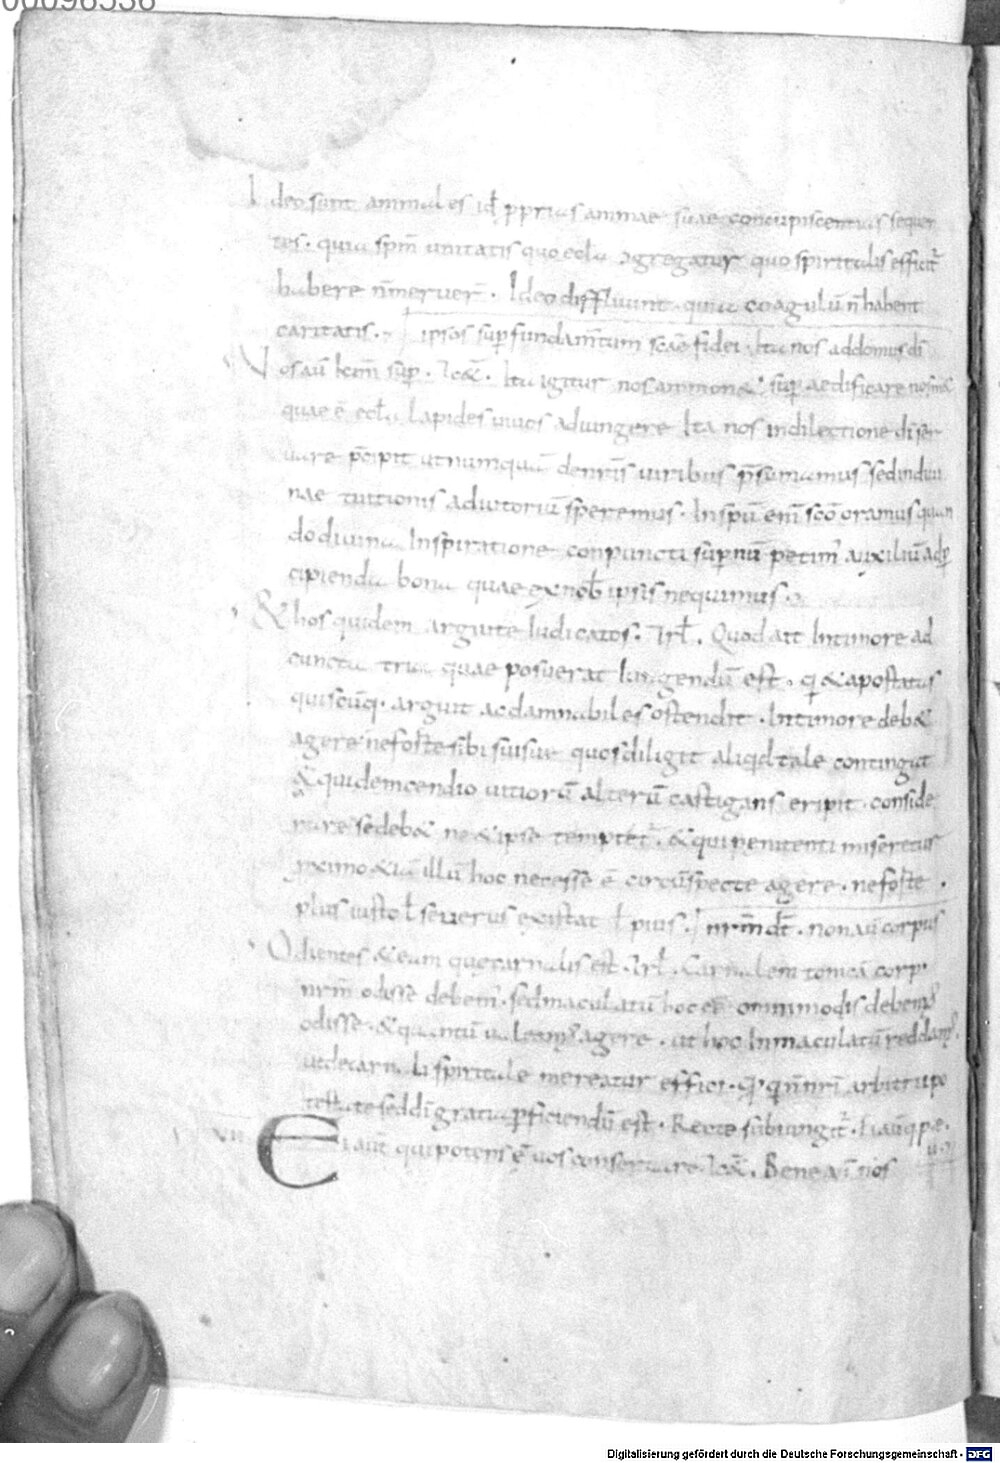 00096536
Ideo sunt animales id ÷ pprias animae suae concupiscentias sequen
tes. quia spm̄ unitatis quo eccla ɔgregatur quo spiritalis efficit̄
habere n̄ meruer̄. Ideo diffluunt quia coagulū n̄ habent
caritatis. ipsos sup fundam̄tum scāe fidei. Ita nos addomū di
Vos aū kmī sup. & c&. Ita igitur nos ammon& sup aedificare nosm&
quae ē eccla lapides vivos adiungere Ita nos indilectione di ser
vare p̄cipit ut numquā denr̄is viribus p̄sumamus sed indivi
nae tuitionis adiutoriū speremus. In spū enī scō oramus quan
do divina Inspiratione conpuncti supnū petim̄ auxiliū ad p
cipienda bona quae ex nob ipsis nequimus.
& hos quidem arguite Iudicatos. Quod ait Intimore ad
cuncta tria quae posuerat Iungendū est. q̄ & apostatas
quiscūq. arguit ac damnabiles ostendit. Intimore deb&
agere ne forte sibi suisue quos diligit aliqd tale contingat
& qui de incendio vitiorū alterū castigans eripit. conside
rare se deb& ne & ipse temptet̄. & qui penitenti miseretur
pximo & iā illū hoc necesse ē circūspecte agere. ne forte.
plus iusto ł severus existat ł pius. nrm̄ dt̄. non aū corpus
Odientes & eam que carnalis est. Carnalem tonicā corp'
nrm̄ odisse debem'. sed maculatū hoc ē omnimodis debem'
odisse. & quantū valem' agere. ut hoc Inmaculatū reddam'.
ut de carnali spiritale mereatur effici. qd' n̄ nri arbitrii po
testate sed dī gratia pficiendū est. Recte subiungit̄.
Ei autē qui potens ē vos conservare. & c&. Bene nī nos
Digitalisierung gefördert durch die Deutsche Forschungsgemeinschaft - DFG